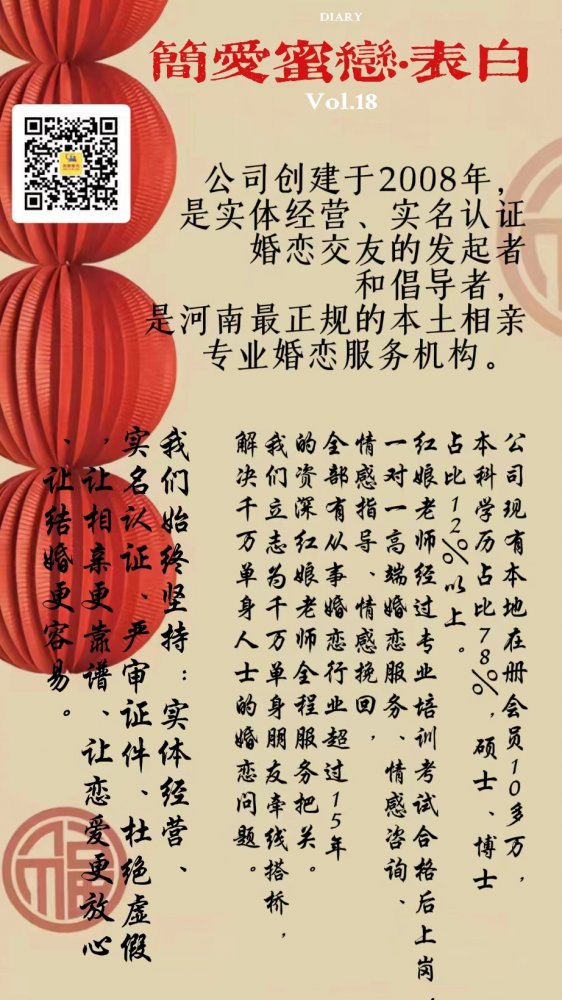 DIARY
簡愛蜜戀·表白
Vol.18
公司创建于2008年，
是实体经营、实名认证
婚恋交友的发起者
和倡导者，
是河南最正规的本土相亲
专业婚恋服务机构。
公司现有本地在册会员10多万，
本科学历占比78%，硕士、博士
占比12%以上。
红娘老师经过专业培训考试合格后上岗，
一对一高端婚恋服务、情感咨询、
情感指导、情感挽回，
全部有从事婚恋行业超过15年
的资深红娘老师全程服务把关。
我们立志为千万单身朋友牵线搭桥，
解决千万单身人士的婚恋问题。
我们始终坚持：实体经营、
实名认证、严审证件、杜绝虚假
，让相亲更靠谱、让恋爱更放心
、让结婚更容易。
福
福